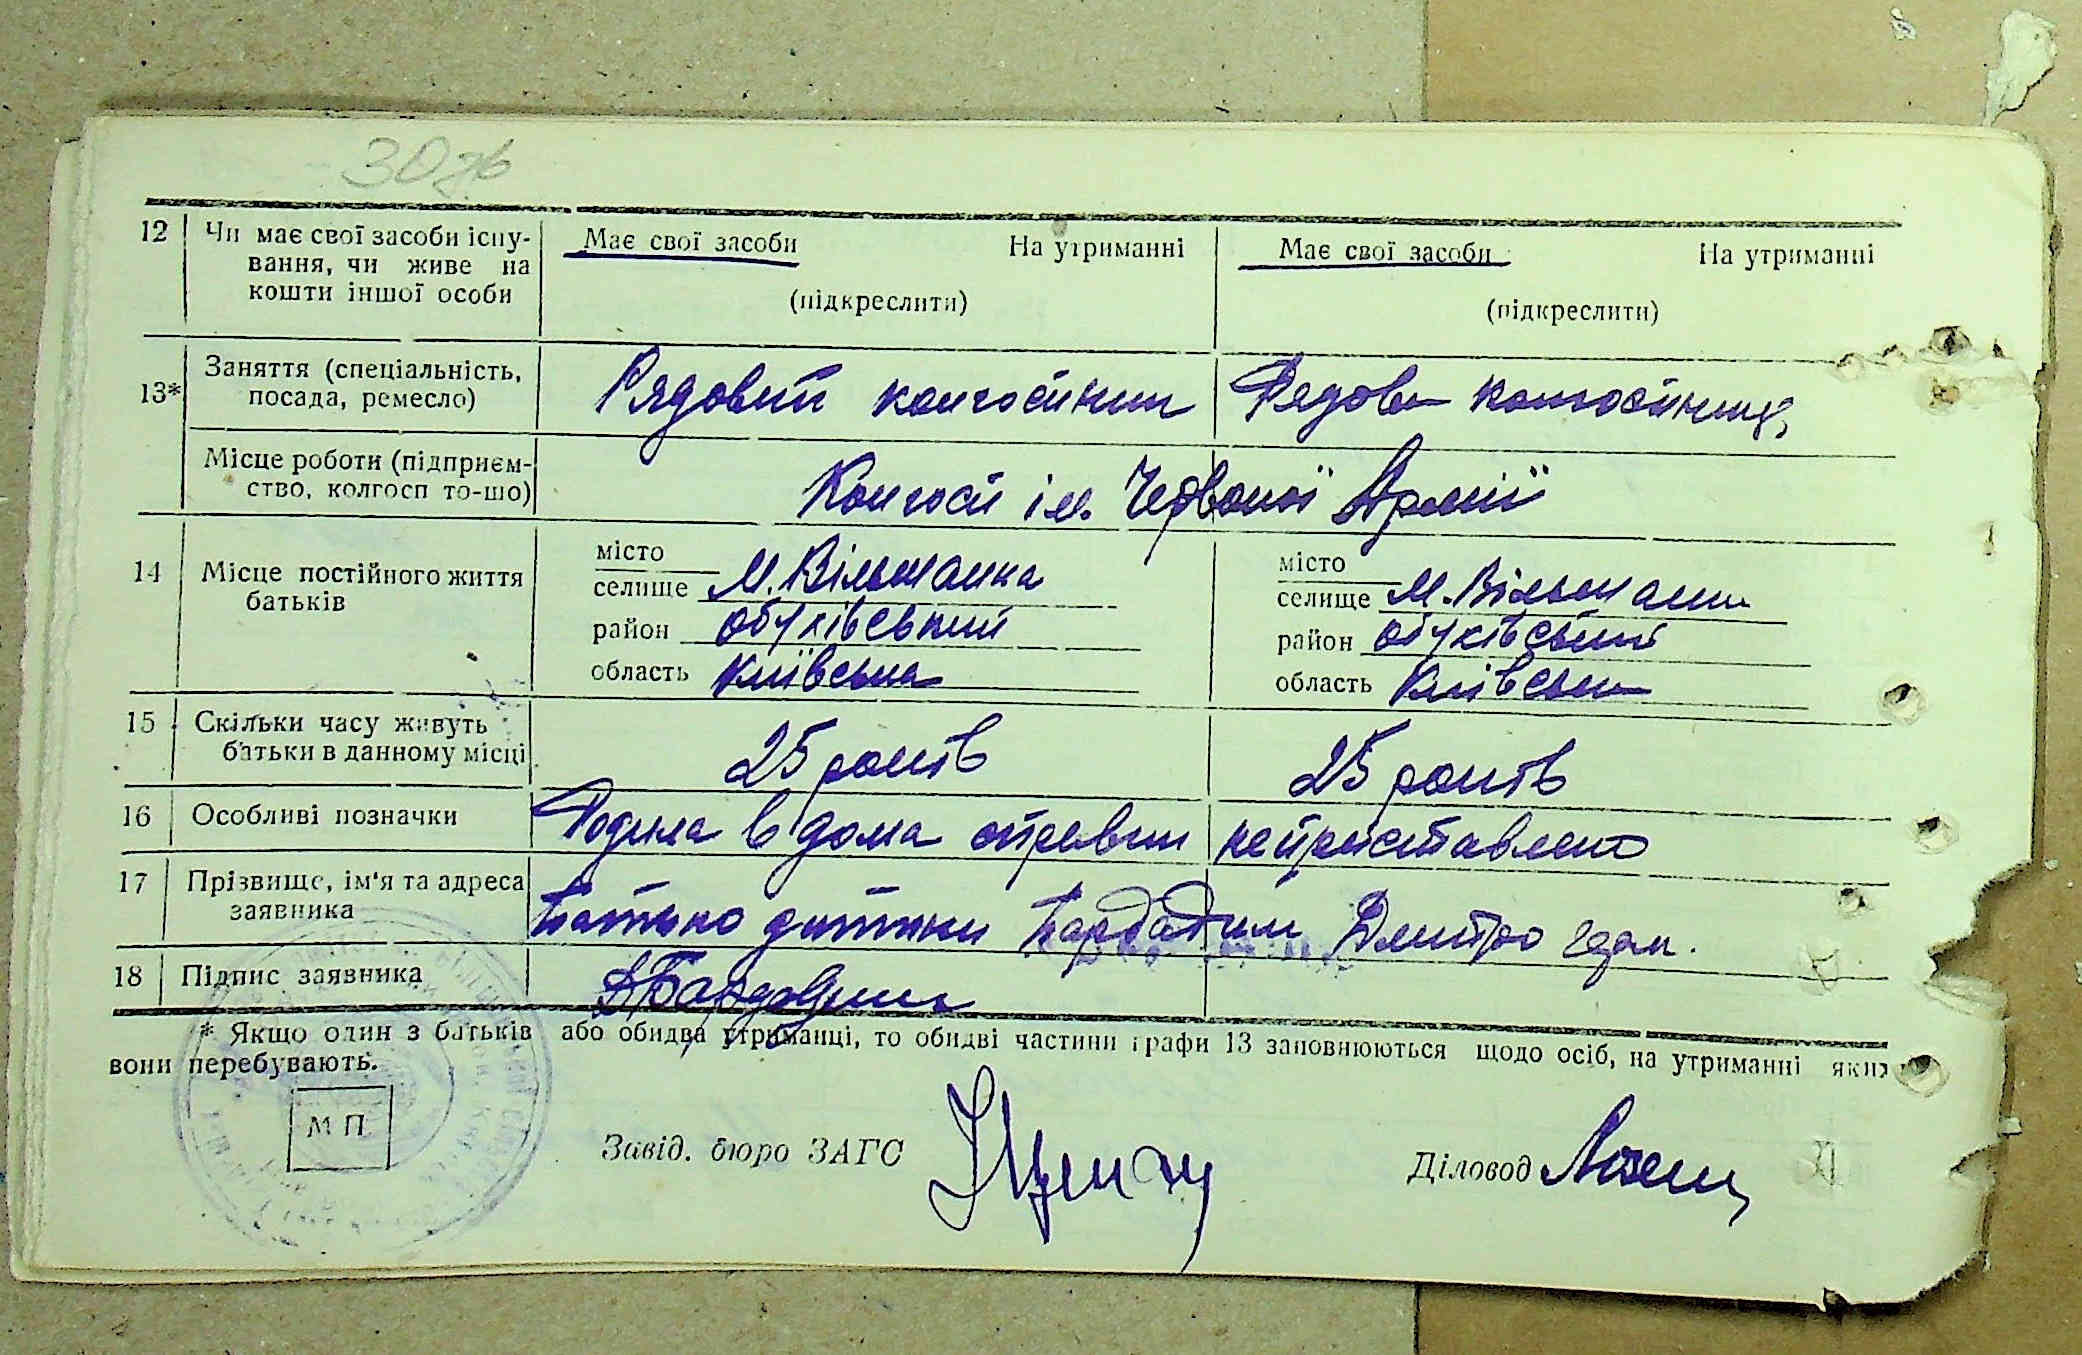 30
12 Чи має свої засоби існу-
вання, чи живе на
кошти іншої особи
Має свої засоби На утриманні
(підкреслити)
Має свої засоби На утриманні
(підкреслити)
13* Заняття (спеціальність,
посада, ремесло)
Рядовий колгоспник Рядова колгоспниця
Місце роботи (підприєм-
ство, колгосп то-що)
Колгосп ім. Червоної Армії
14 Місце постійного життя
батьків
місто
селище М. Вільшанка
район обухівський
область київська
місто
селище М. Вільшанка
район обухівський
область Київська
15 Скільки часу живуть
батьки в данному місці
25 років 25 років
16 Особливі позначки
Родила в дома справки не приставлено
17 Прізвище, ім'я та адреса
заявника
батько дитини Бардадим Дмитро
18 Підпис заявника
* Якщо один з батьків або обидва утриманці, то обидві частини графи 13 заповнюються щодо осіб, на утриманні яких
вони перебувають.
М П
Завід. бюро ЗАГС
Діловод